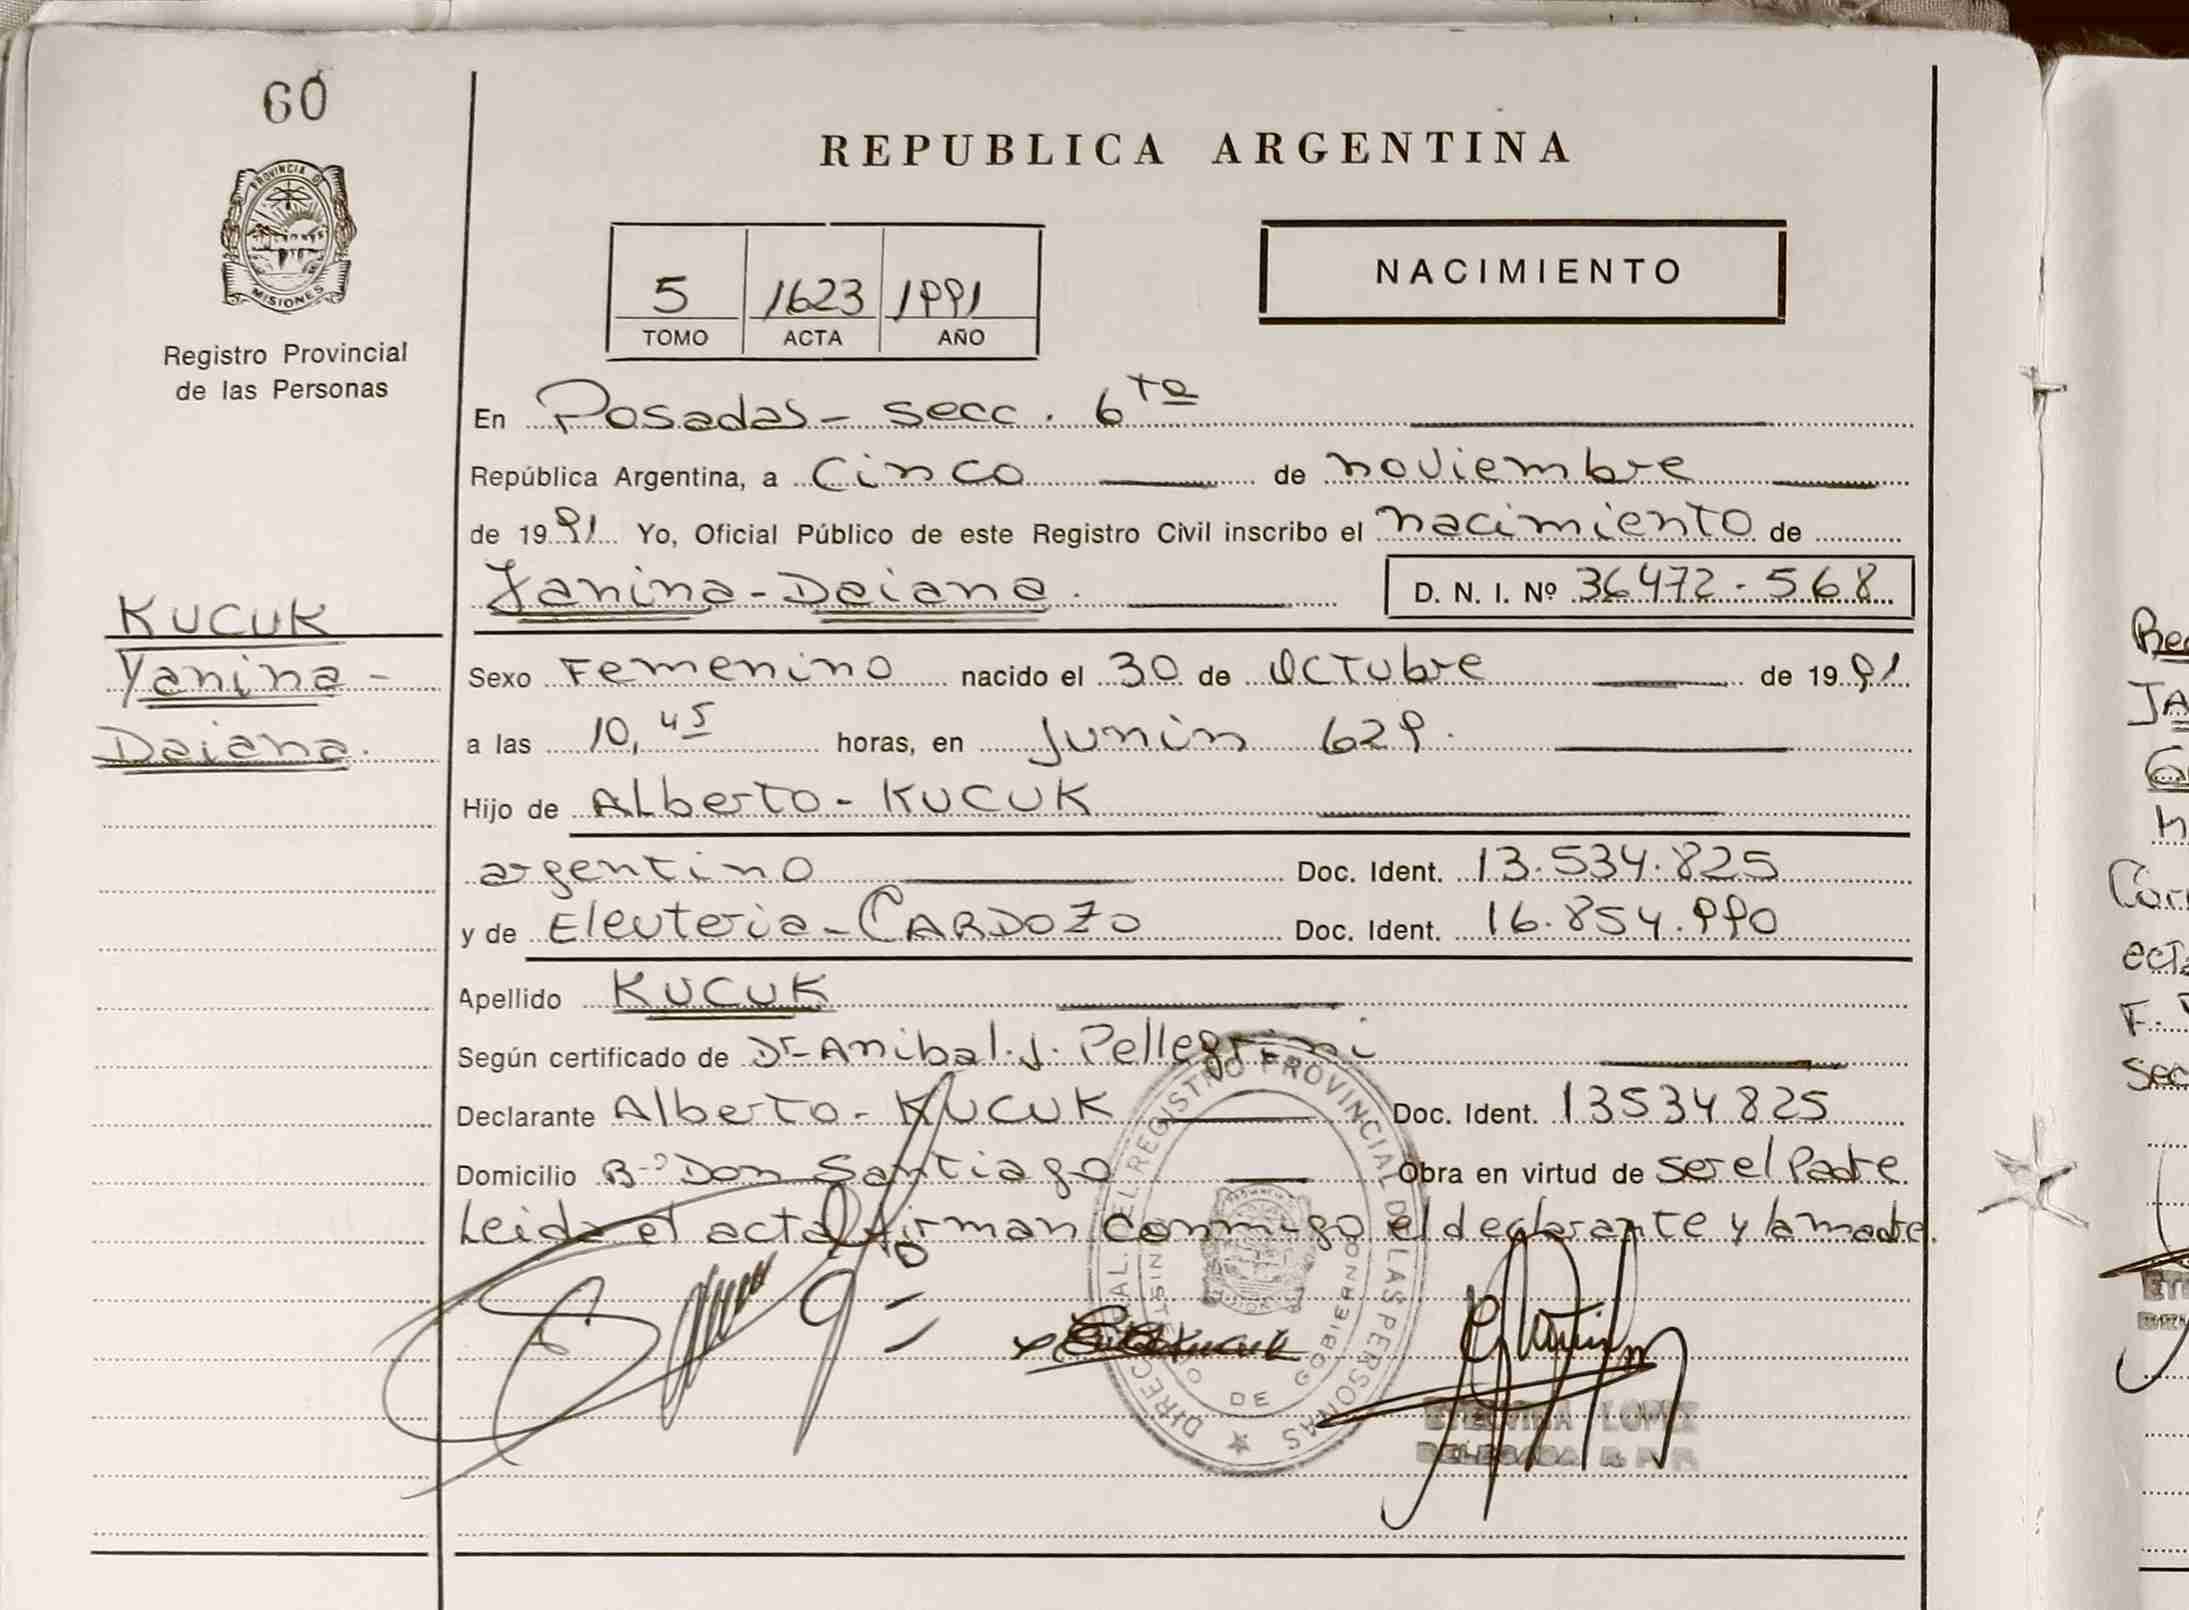 60
PROVINCIA DE
MISIONES
Registro Provincial
de las Personas
REPUBLICA ARGENTINA
5 1623 1991
TOMO ACTA AÑO
NACIMIENTO
En Posadas - secc. 6ta
República Argentina, a Cinco de noviembre
de 1991 Yo, Oficial Público de este Registro Civil inscribo el nacimiento de
Yanina - Daiana. D. N. I. Nº 36472-568
KUCUK
Yanina -
Daiana.
Sexo Femenino nacido el 30 de Octubre de 1991
a las 10,45 horas, en Junin 629.
Hijo de Alberto - KUCUK
argentino Doc. Ident. 13.534.825
y de Eleuteria - CARDOZO Doc. Ident. 16.854.990
Apellido KUCUK
Según certificado de Dr Anibal. J. Pellegrini
Declarante Alberto - KUCUK Doc. Ident. 13534825
Domicilio Bº Don Santiago Obra en virtud de ser el Padre
Leida el acta firman conmigo el declarante y la madre.
DIREC. GRAL. DEL REGISTRO PROVINCIAL DE LAS PERSONAS
MINISTERIO DE GOBIERNO
MISIONES
ETELVINA LOPEZ
DELEGADA R. P. P.
JA
F.